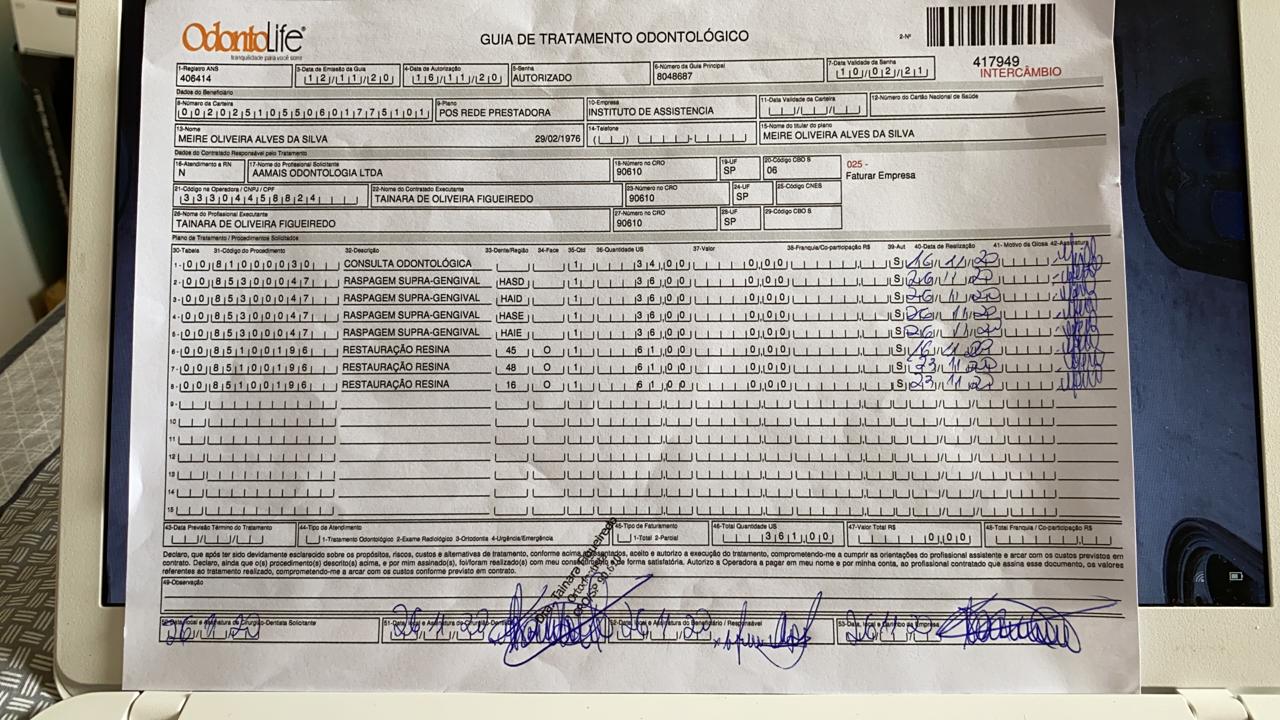 OdontoLife®
tranquilidade para você sorrir
GUIA DE TRATAMENTO ODONTOLÓGICO
2-Nº
417949
INTERCÂMBIO
1-Registro ANS 3-Data de Emissão da Guia 4-Data de Autorização 5-Senha 6-Número da Guia Principal 7-Data Validade da Senha
406414 12/11/20 16/11/20 AUTORIZADO 8048687 10/02/21
Dados do Beneficiário
8-Número da Carteira 9-Plano 10-Empresa 11-Data Validade da Carteira 12-Número do Cartão Nacional de Saúde
00202510550601775101 POS REDE PRESTADORA INSTITUTO DE ASSISTENCIA
13-Nome 14-Telefone 15-Nome do titular do plano
MEIRE OLIVEIRA ALVES DA SILVA 29/02/1976 MEIRE OLIVEIRA ALVES DA SILVA
Dados do Contratado Responsável pelo Tratamento
16-Atendimento a RN 17-Nome do Profissional Solicitante 18-Número no CRO 19-UF 20-Código CBO S
N AAMAIS ODONTOLOGIA LTDA 90610 SP 06
025 -
Faturar Empresa
21-Código na Operadora / CNPJ / CPF 22-Nome do Contratado Executante 23-Número no CRO 24-UF 25-Código CNES
33304458824 TAINARA DE OLIVEIRA FIGUEIREDO 90610 SP
26-Nome do Profissional Executante 27-Número no CRO 28-UF 29-Código CBO S
TAINARA DE OLIVEIRA FIGUEIREDO 90610 SP
Plano de Tratamento / Procedimentos Solicitados
30-Tabela 31-Código do Procedimento 32-Descrição 33-Dente/Região 34-Face 35-Qtd 36-Quantidade US 37-Valor 38-Franquia/Co-participação R$ 39-Aut 40-Data de Realização 41- Motivo da Glosa 42-Assinatura
1- 00 81000030 CONSULTA ODONTOLÓGICA 1 34,00 0,00 S 16/11/20
2- 00 85300047 RASPAGEM SUPRA-GENGIVAL HASD 1 36,00 0,00 S 26/11/20
3- 00 85300047 RASPAGEM SUPRA-GENGIVAL HAID 1 36,00 0,00 S 26/11/20
4- 00 85300047 RASPAGEM SUPRA-GENGIVAL HASE 1 36,00 0,00 S 26/11/20
5- 00 85300047 RASPAGEM SUPRA-GENGIVAL HAIE 1 36,00 0,00 S 26/11/20
6- 00 85100196 RESTAURAÇÃO RESINA 45 O 1 61,00 0,00 S 16/11/20
7- 00 85100196 RESTAURAÇÃO RESINA 48 O 1 61,00 0,00 S 23/11/20
8- 00 85100196 RESTAURAÇÃO RESINA 16 O 1 61,00 0,00 S 23/11/20
9-
10-
11-
12-
13-
14-
15-
43-Data Previsão Término do Tratamento 44-Tipo de Atendimento 45-Tipo de Faturamento 46-Total Quantidade US 47-Valor Total R$ 48-Total Franquia / Co-participação R$
1-Tratamento Odontológico 2-Exame Radiológico 3-Ortodontia 4-Urgência/Emergência 1-Total 2-Parcial 361,00 0,00
Declaro, que após ter sido devidamente esclarecido sobre os propósitos, riscos, custos e alternativas de tratamento, conforme acima apresentados, aceito e autorizo a execução do tratamento, comprometendo-me a cumprir as orientações do profissional assistente e arcar com os custos previstos em
contrato. Declaro, ainda que o(s) procedimento(s) descrito(s) acima, e por mim assinado(s), foi/foram realizado(s) com meu consentimento e de forma satisfatória. Autorizo a Operadora a pagar em meu nome e por minha conta, ao profissional contratado que assina esse documento, os valores
referentes ao tratamento realizado, comprometendo-me a arcar com os custos conforme previsto em contrato.
49-Observação
Tainara Figueiredo
50-Data, local e Assinatura do Cirurgião-Dentista Solicitante 51-Data, local e Assinatura do Cirurgião-Dentista 52-Data, local e Assinatura do Beneficiário / Responsável 53-Data, local e Carimbo da Empresa
26/11/20 26/11/20 26/11/20 26/11/20